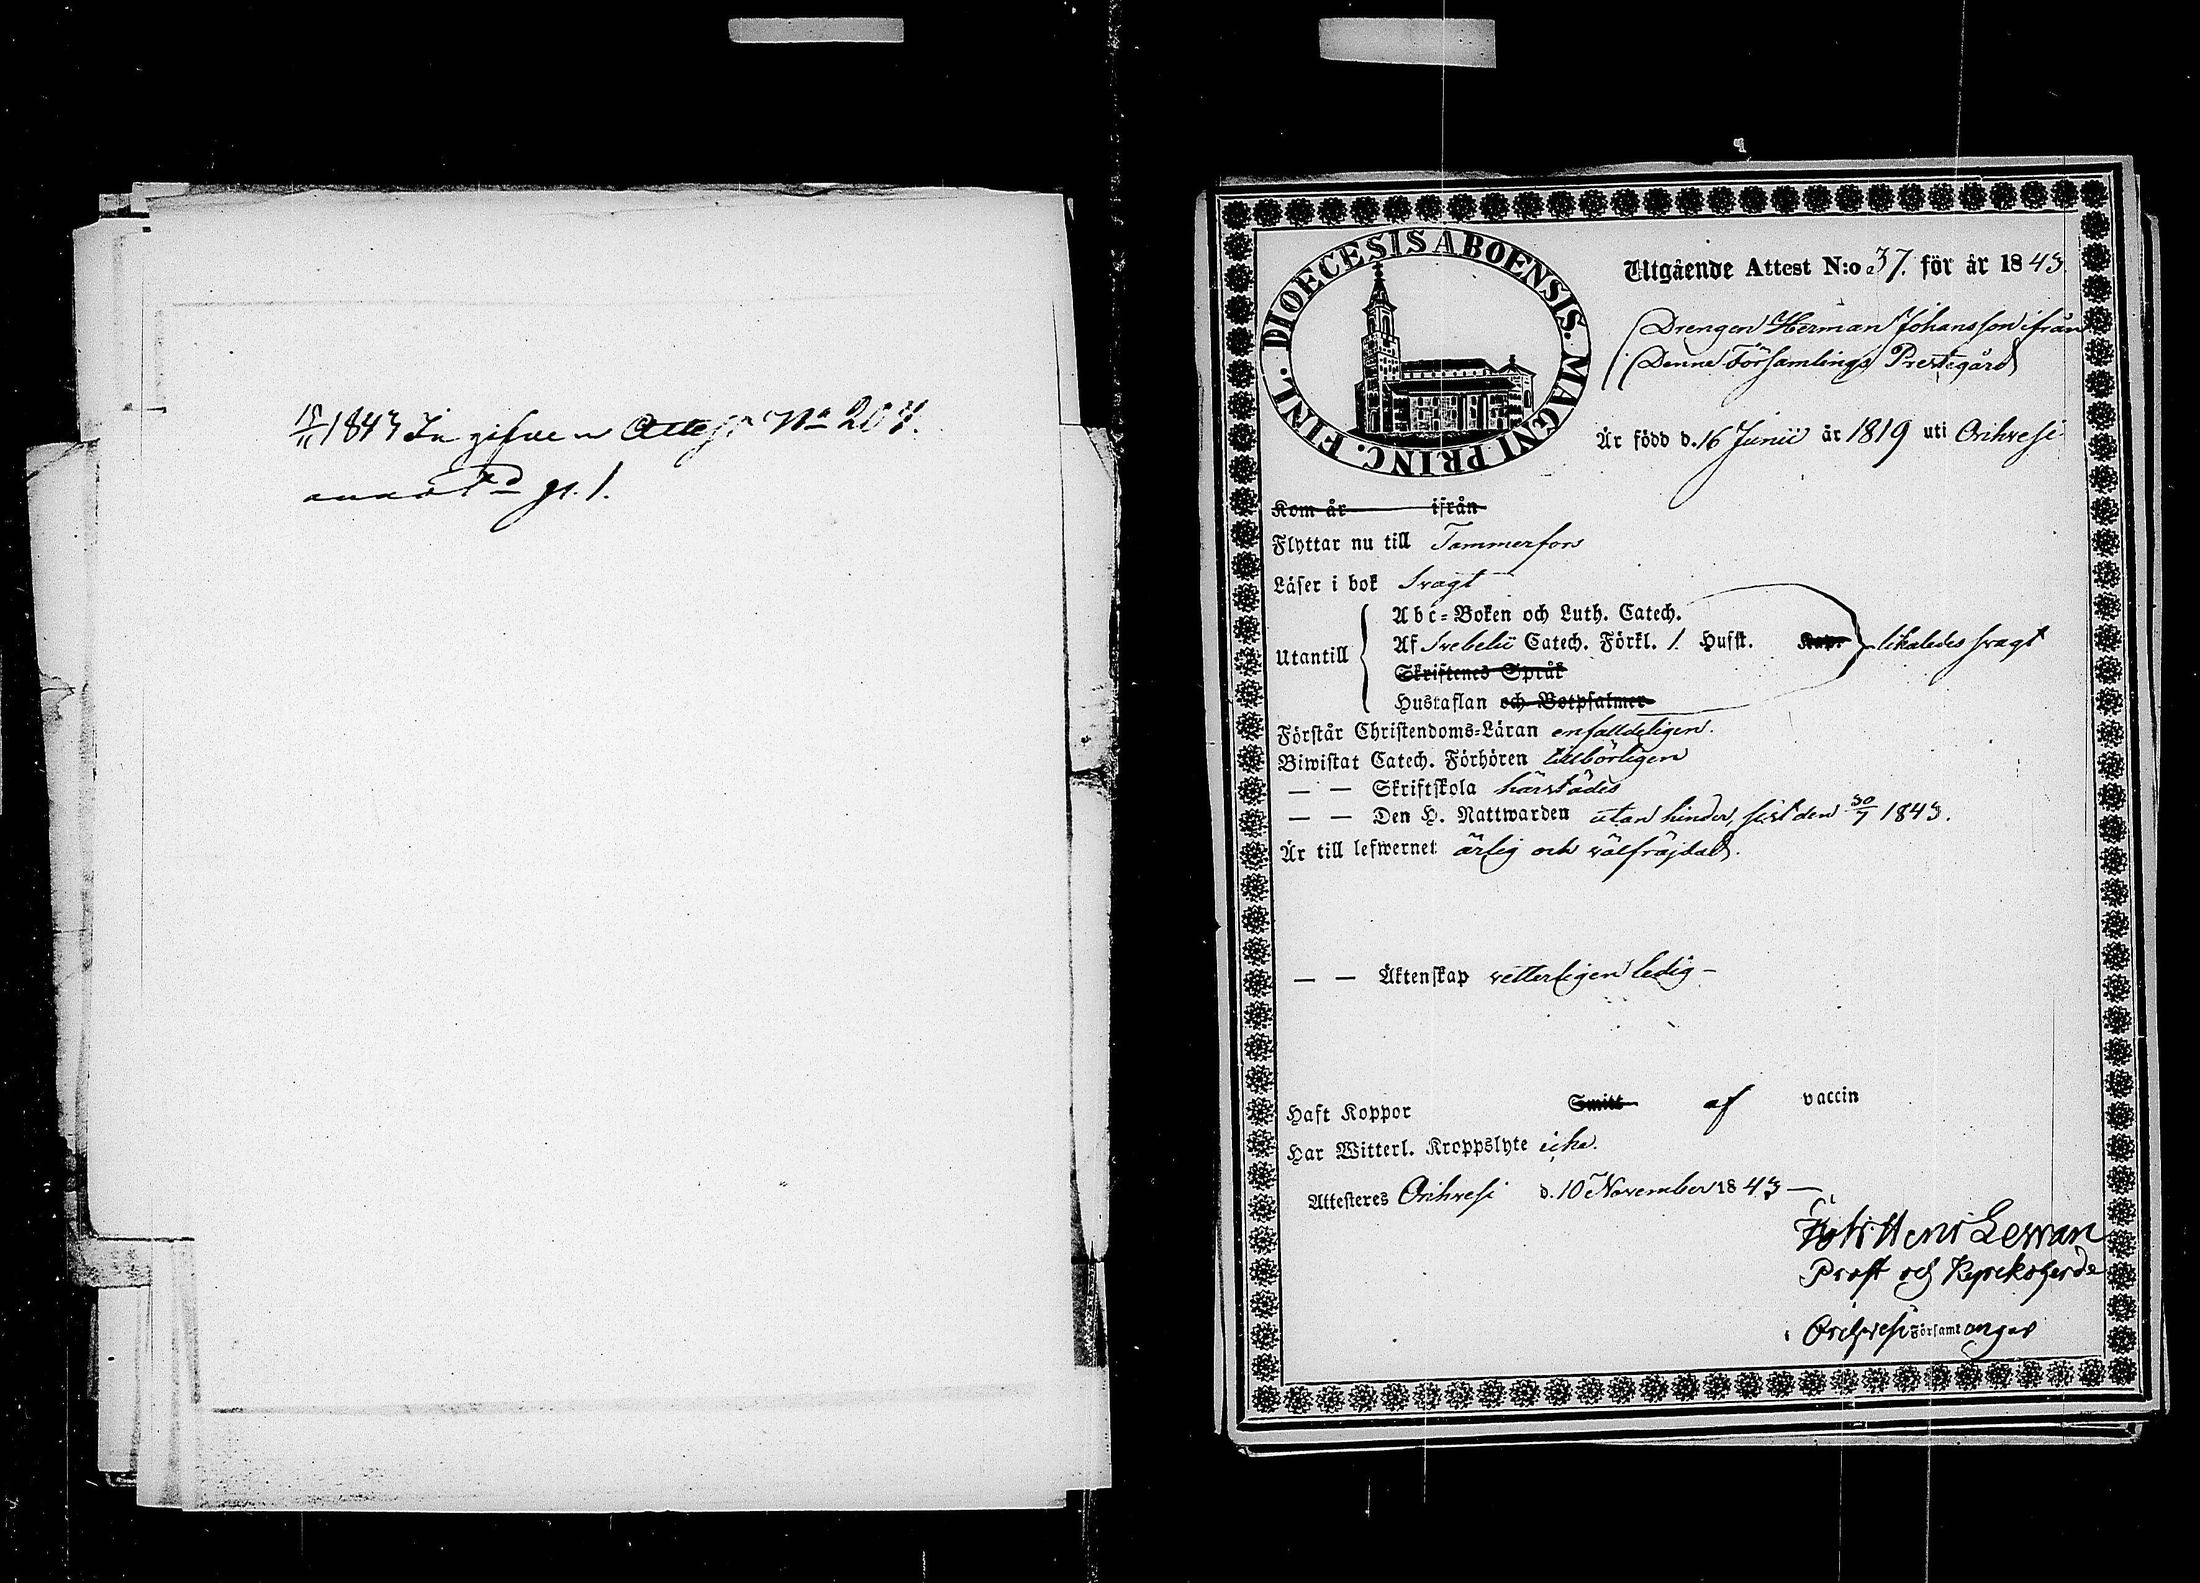 15/11 1843 Ingifven Attest No 207.
annotd p. 1.
DIOECESIS ABOENSIS. MAGNI PRINC. FINL.
Utgående Attest N:o 37. för år 1843.
Drengen Herman Johansson ifrån
Denne Församlings Prestegård
Är född d. 16 Junii år 1819 uti Orihvesi
Kom år ifrån
Flyttar nu till Tammerfors
Läser i bok Svagt
Utantill
Abc-Boken och Luth. Catech.
Af Svebelii Catech. Förkl. 1. Husst. Kap. likaledes svagt
Skriftenes Språk
Hustaflan och Botpsalmer
Förstår Christendoms-Läran enfalldeligen.
Biwistat Catech. Förhören tillbörligen
— — Skriftskola härstädes
— — Den H. Nattwarden utan hinder, sist den 30/7 1843.
Är till lefwernet ärlig och välfräjdad.
— — Äktenskap vetterligen ledig –
Haft Koppor Smitt af vaccin
Har Witterl. Kroppslyte icke.
Attesteres Orihvesi d. 10 November 1843 —
Henr Lewan
Prost och Kyrckoherde
i Orihvesi Församl